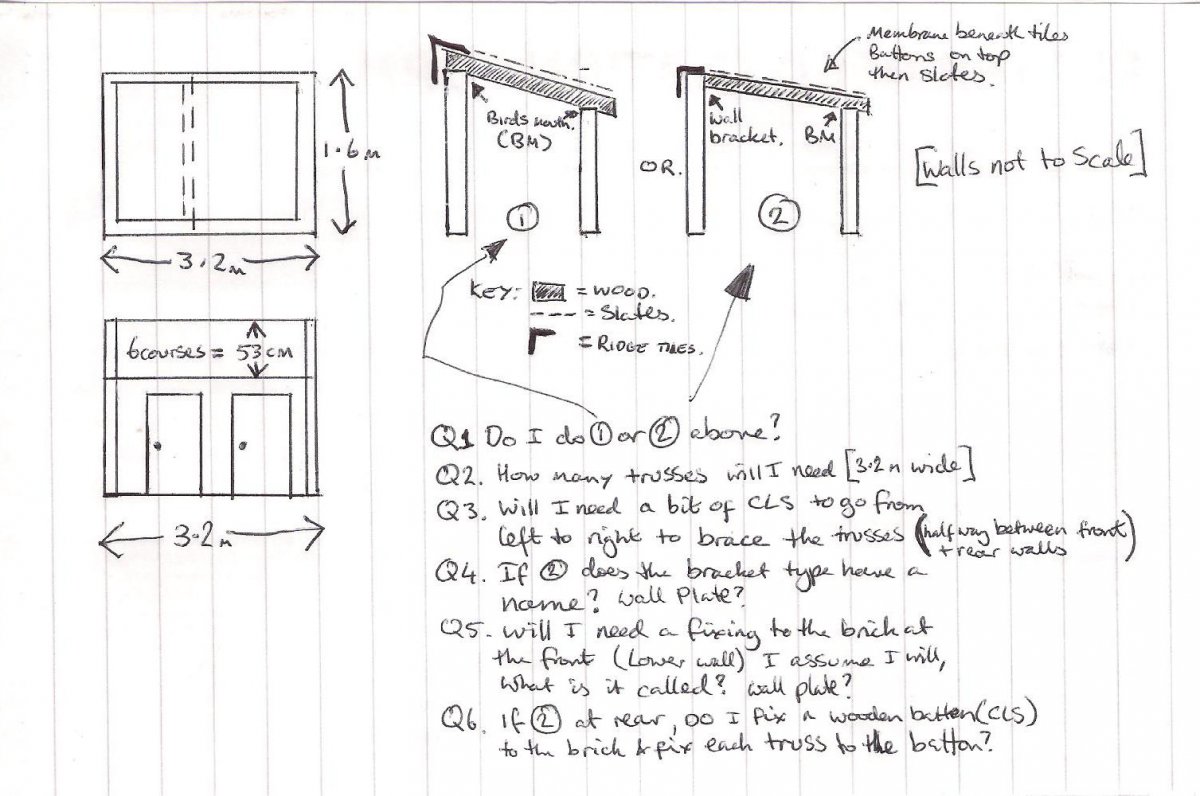 Membrane beneath tiles
Battons on top
then slates.
1.6m
3.2m
Birds mouth.
(BM)
①
OR.
wall
bracket.
BM
②
[Walls not to Scale]
KEY:
= WOOD.
= Slates.
= RIDGE TILES.
6 courses = 53 cm
3.2m
Q1 Do I do ① or ② above?
Q2. How many trusses will I need [3.2m wide]
Q3. Will I need a bit of CLS to go from
left to right to brace the trusses (halfway between front
+ rear walls)
Q4. If ② does the bracket type have a
name? wall Plate?
Q5. Will I need a fixing to the brick at
the front (Lower wall) I assume I will,
What is it called? wall plate?
Q6. If ② at rear, DO I fix a wooden batten (CLS)
to the brick & fix each truss to the batton?